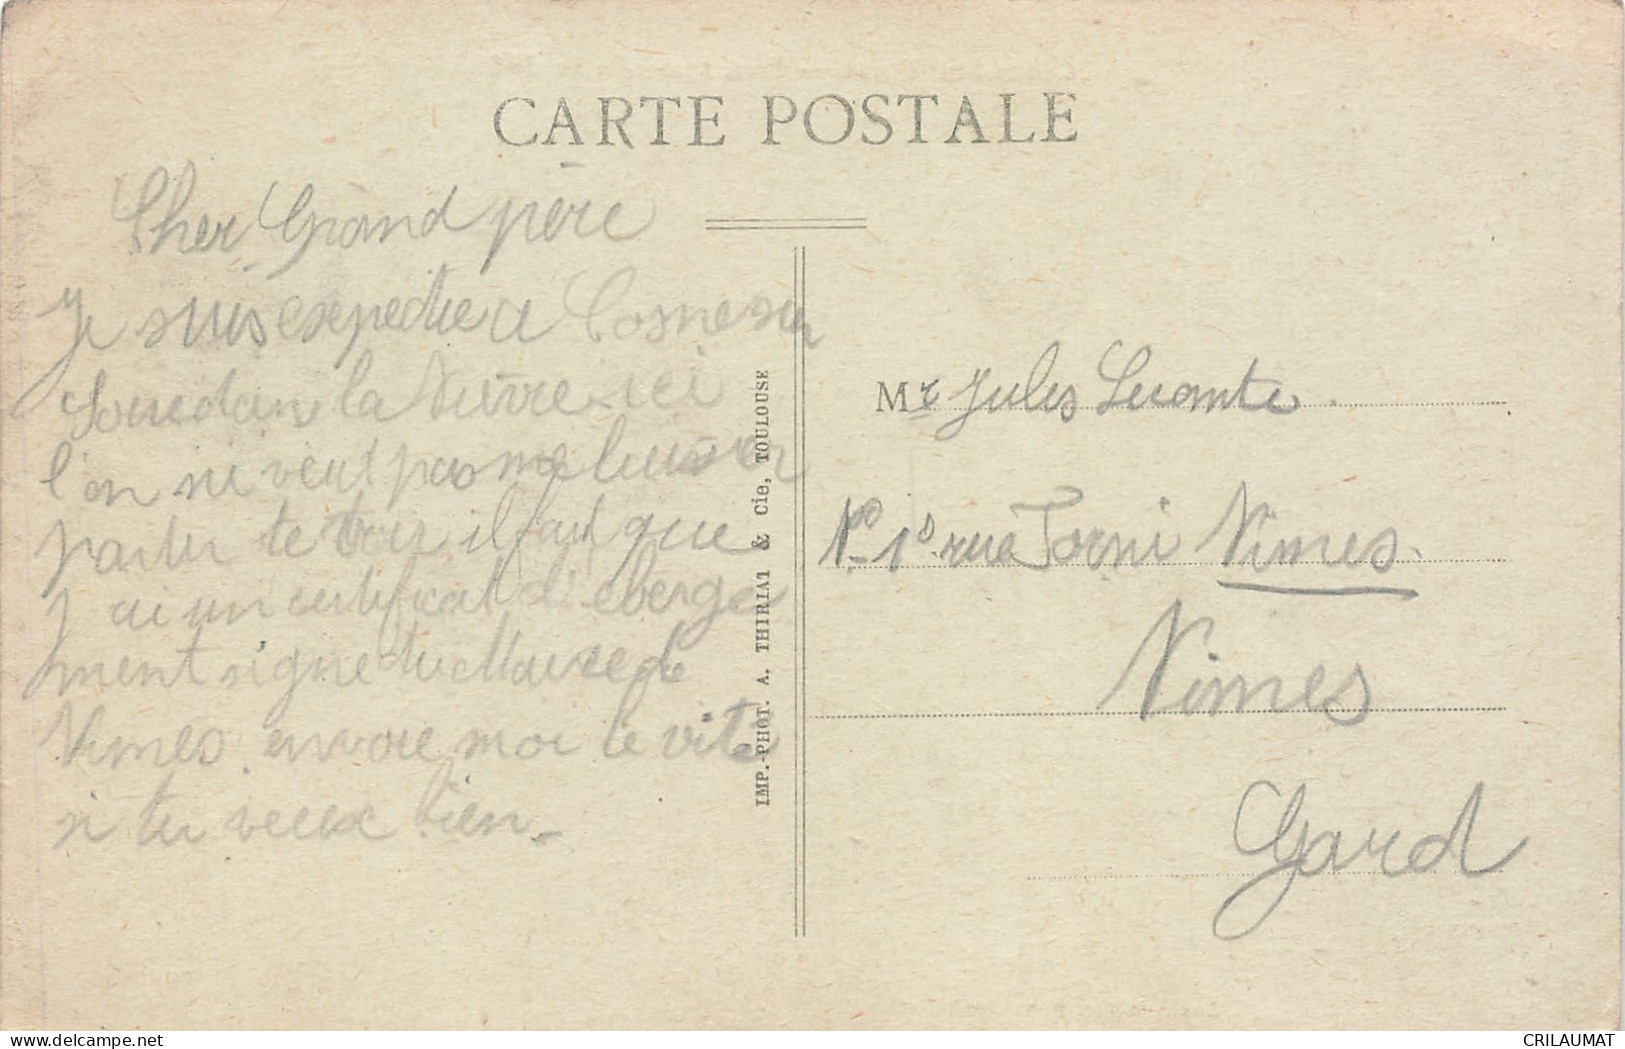 CARTE POSTALE
Cher Grand père
Je suis expedie a Cosne sur
la Nievre ici
l'on ne veut pas me laisser
partir te voir il faut que
j ai un certificat d'eberge
ment signe du Maire de
Nimes envoie moi le vite
si tu veux bien_
IMP.-PHOT. A. THIRIAT & Cie, TOULOUSE
Mr Jules
rue Nimes
Nimes
Gard
www.delcampe.net
CRILAUMAT